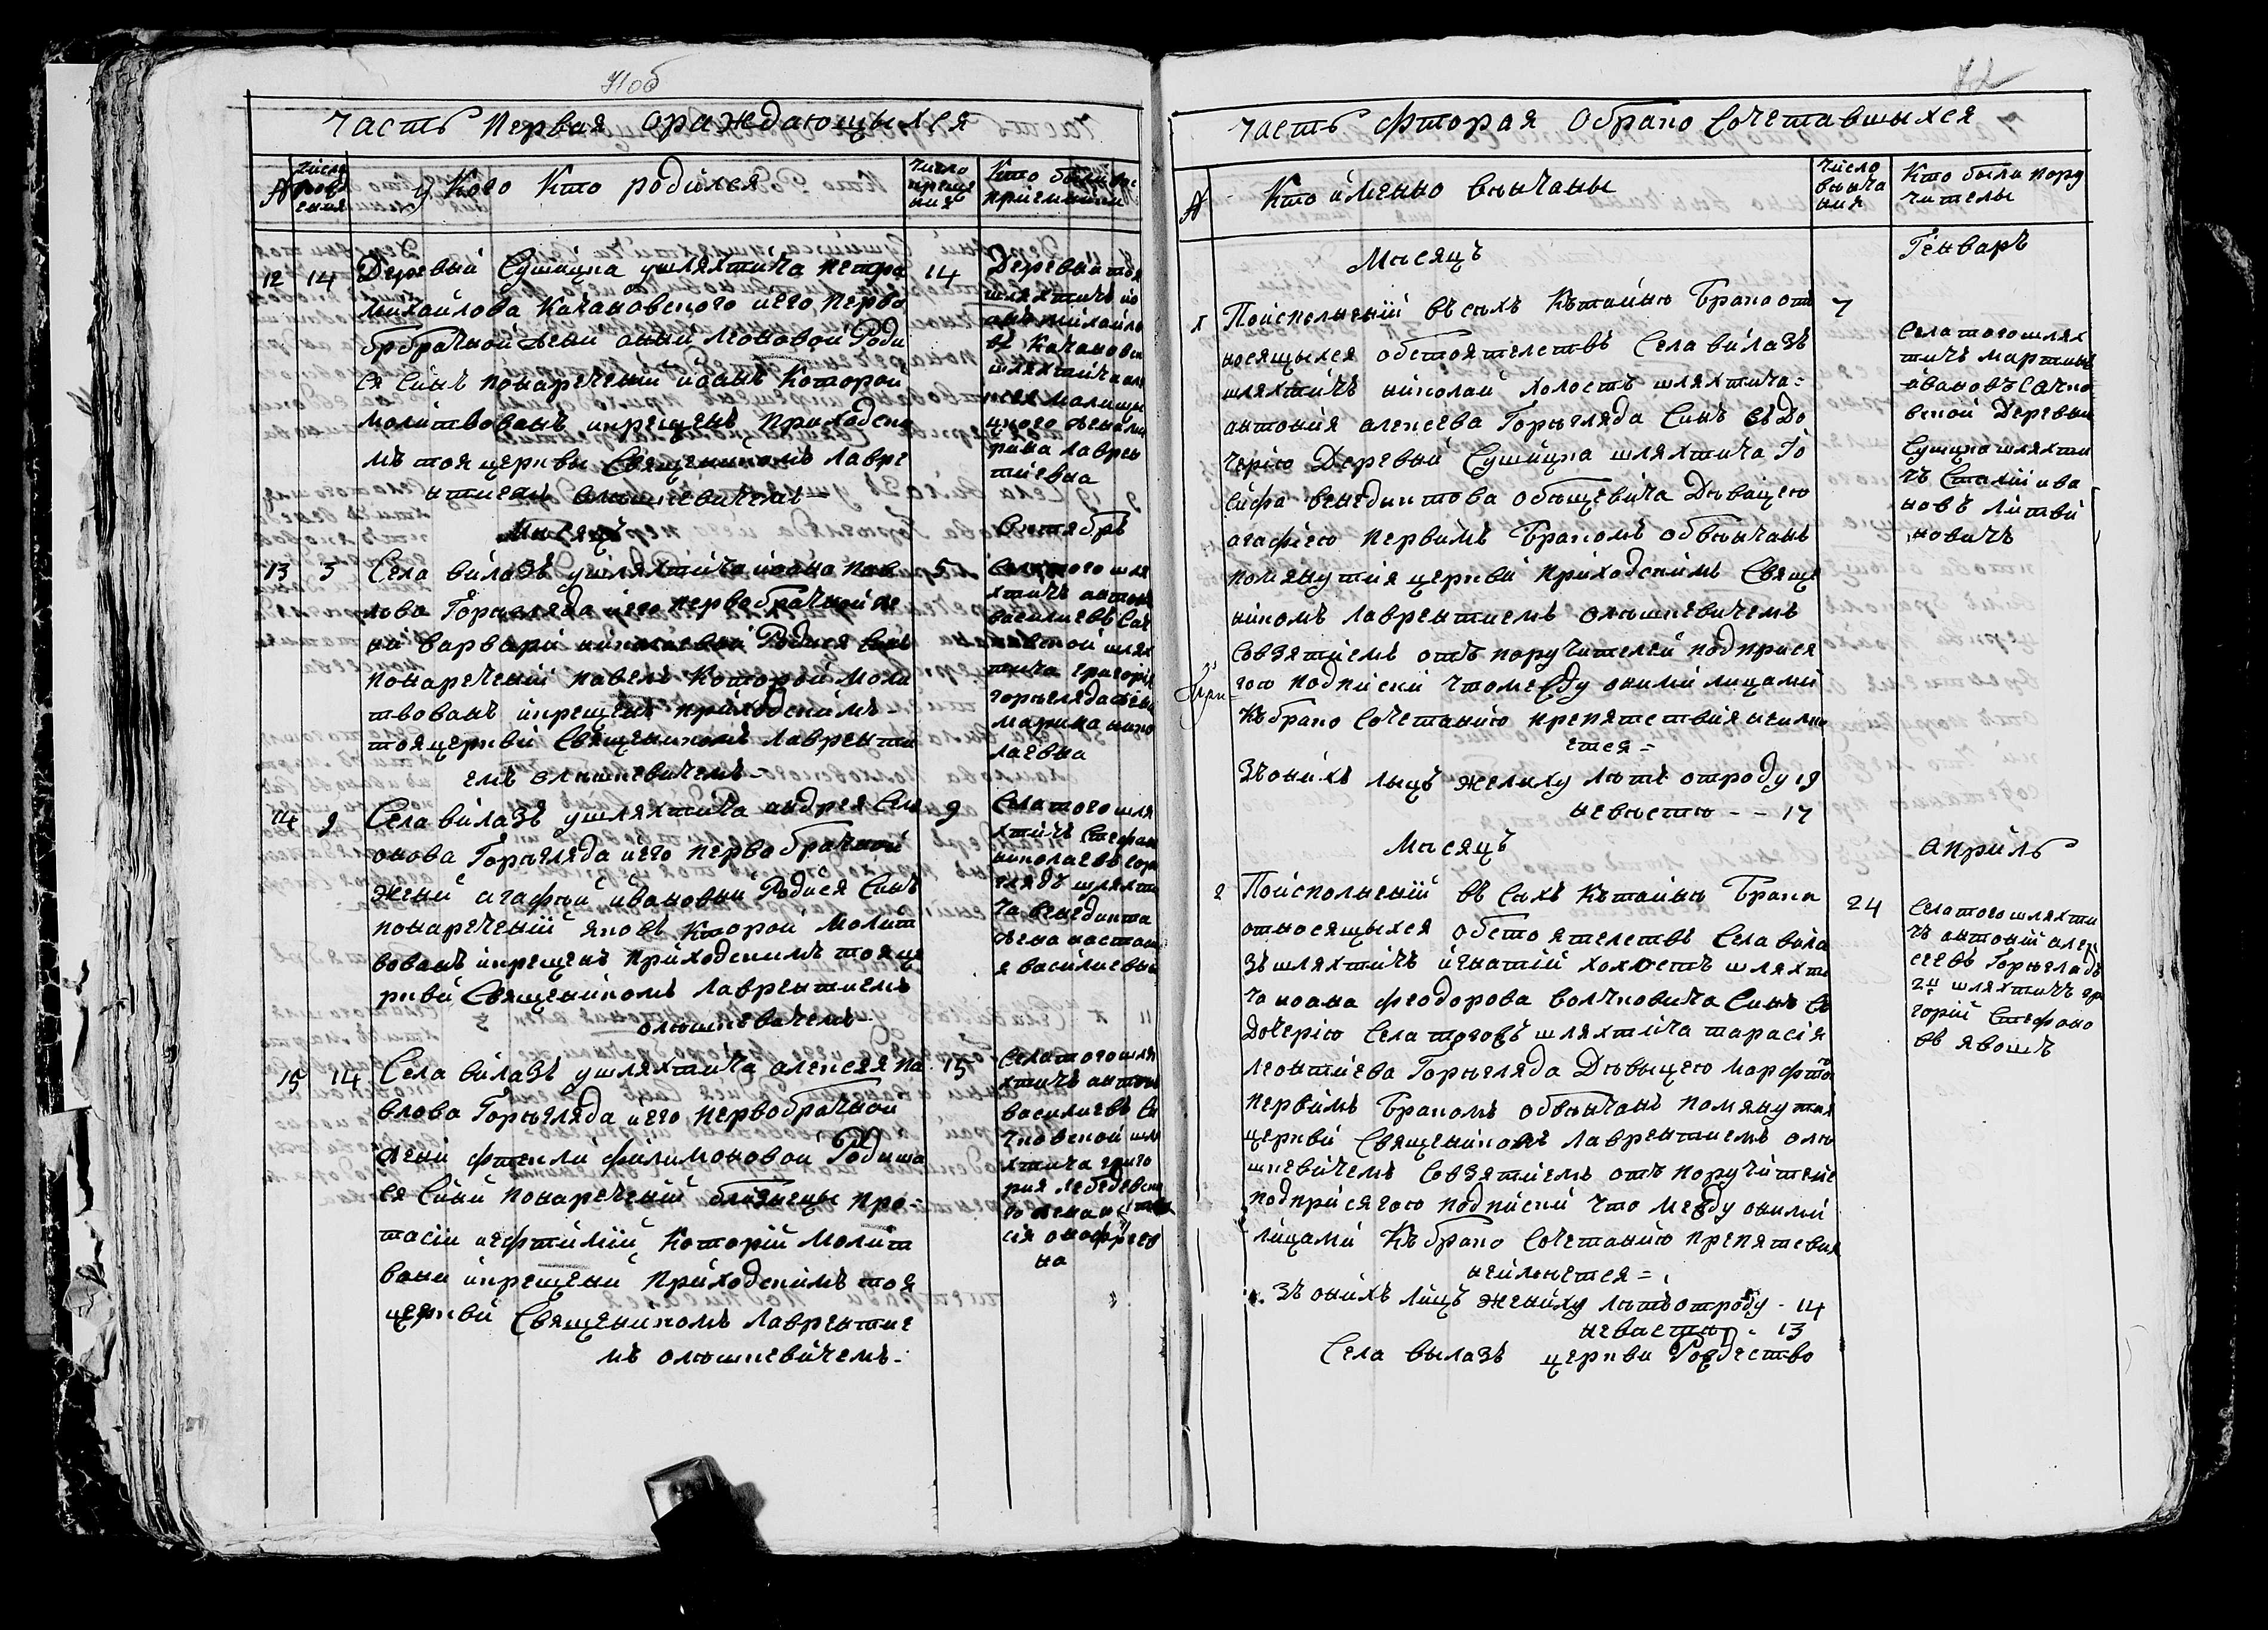 71об
Часть первая ораждающыхся
№
Число рожд ения
у Кого Кто родихся
Число креще ния
Кто были вос приемники
12 14 Деревни Сушицка ушляхтича петра 14
михайлова Качановского иего перво
бробрачной жени аний леоновой Роди
ся Синъ понаречений иоанъ Которой
молитвованъ икрещенъ Приходски
мъ тоя церкви Священикомъ лавре
нтиемъ олюшкевичемъ=
Деревни тоя
шляхтичъ ио
анъ михайло
въ Качановски
шляхтича
цкого жена ма
рина лаврен
тиевна
Месяцъ
Октябръ
13 3 Села вилазъ ушляхтича иоана пав 5
лова Горегляда иего первобрачной же
ни варвари николаевни Родися Синъ
понаречений павелъ Которой моли
твованъ икрещенъ приходскимъ
тояцеркви Священикомъ лаврентн
емъ олюшкевичемъ=
Села того шля
хтичъ антонъ
василиевъ Сач
ковской шлях
тича григория
горегляда жена
марина нико
лаевна
14 9 Села вилазъ ушляхтича андрея Сим 9
онова Горегляда иего первобрачной
жени агафии ивановни Родися Синъ
понаречений яковъ Которой молит
вованъ икрещенъ Приходскимъ тояце
ркви Священикомъ лаврентиемъ
олюшкевичемъ
Села того шля
хтичъ Стефанъ
николаевъ Гор
глядъ шляхти
ча венедикта
жена настаси
я василиевна
15 14 Села вилазъ ушляхтича алексея па 15
влова Горегляда иего первобрачной
жени фтекли филимоновой Родиша
ся Сини понаречений близнецы про=
тасіи иефтимій Которій молит
вани икрещени Приходскимъ тоя
церкви Священикомъ лаврентие
мъ олюшкевичемъ-
Села того шля
хтичъ антонъ
василиевъ Са
чковской шля
хтича григо
рия лебедевско
го жена
сія онофриев
на
72
Часть фторая Обрако Сочетавшыхся
№
Кто именно венчаны
Число венча ния
Кто были пору чителы
Месяцъ
Генваръ
1 Поисполнений въсехъ Ктайне Брака от 7
носящыхся обстоятелствъ Села вилазъ
шляхтичъ николай холостъ шляхтича=
антония алексеева Горегляда Синъ съ До
черию Деревни Сушицка шляхтича Іо
сифа венедиктова обущевича Девицею
агафиею первимъ Бракомъ обвенчанъ
помянутия церкви приходскимъ Свяще
никомъ лаврентиемъ олюшкевичемъ
Совзятиемъ отъ поручителей подприся
гою подписки чтомежду оними лицами
Къбрако Сочетанию препятствия неиме
ется=
Зъонихъ лицъ жениху летъ отроду 19
невесте - - 17
Села того шлях
тичъ мартинъ
ивановъ Сачко
вской Деревни
Сушицка шляхти
чъ Стахий ива
новъ литви
новичъ
Месяцъ
априль
2 Поисполнений въ Сехъ Ктайне Брака 24
относящыхся обстоятелствъ Села вила
зъ шляхтичъ игнатий холостъ шляхти
ча иоана феодорова волчковича Синъ Съ
Дочерию Села тогожъ шляхтича тарасія
леонтиева Горегляда Девыцею марфою
первимъ Бракомъ обвенчанъ помянутия
церкви Священикомъ лаврентиемъ олю
шкевичемъ Совзятиемъ отъ поручителе
подприсягою подписки что между оними
лицами Къбрако Сочетанию препятствия
неимеется=
Зъ онихъ лицъ жениху летъ отроду - 14
невесте - 13
Села того шляхти
чъ антоний алек
сеевъ Горегладъ
2й шляхтичъ гри
горий Стефано
въ явошъ
Села вылазъ церкви Рождество